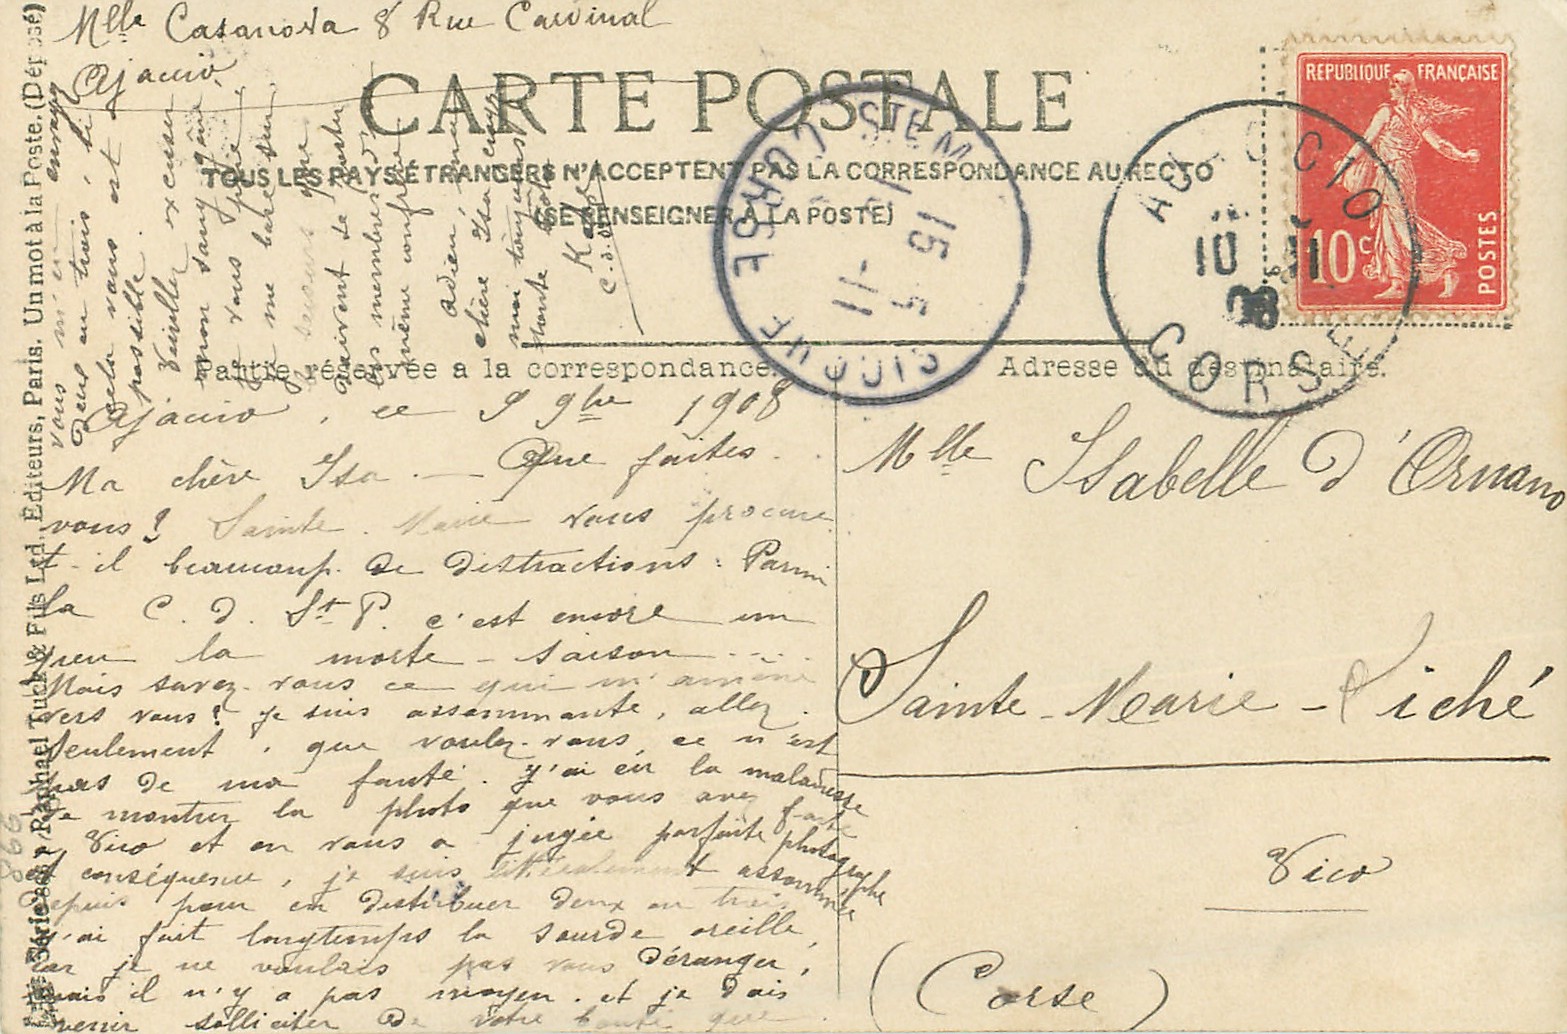 Mlle Casanova 8 Rue Cardinal
Ajaccio
CARTE POSTALE
TOUS LES PAYS ÉTRANGERS N'ACCEPTENT PAS LA CORRESPONDANCE AU RECTO
(SE RENSEIGNER A LA POSTE)
Partie réservée a la correspondance.
Adresse du destinataire.
REPUBLIQUE FRANÇAISE
10c
POSTES
AJACCIO
10 11
08
CORSE
STE M
15
11
CORSE
Ajaccio, ce 9 9bre 1908
Ma chère Isa. — Que faites.
vous? Sainte. Marie vous procure
t-il beaucoup de distractions: Parmi
la C. d. St P. c'est encore un
peu la morte-saison....
Mais savez-vous ce qui m'amène
vers vous? Je suis assommante, allez.
Seulement, que voulez-vous, ce n'est
pas de ma faute. J'ai eu la maladresse
de montrer la photo que vous avez faite
à Vico et on vous a jugée parfaite photographe
et conséquence, je suis littéralement assommée
depuis pour en distribuer deux ou trois
j'ai fait longtemps la sourde oreille,
car je ne voulais pas vous déranger,
mais il n'y a pas moyen. et je dois
venir solliciter de votre bonté que
vous m'en
deux ou trois, si
cela vous est
possible.
Veuillez excuser
mon sans gêne,
je vous prie,
je me base sur
secours que
doivent se porter
les membres d'une
même confrérie
Adieu,
chère Isa
moi toujours
toute votre
C. d. St P.
Mlle Isabelle d'Ornano
Sainte-Marie-Siché
Vico
(Corse)
Série 866 Raphael Tuck & Fils Led., Editeurs, Paris. Un mot à la Poste. (Déposé)
866